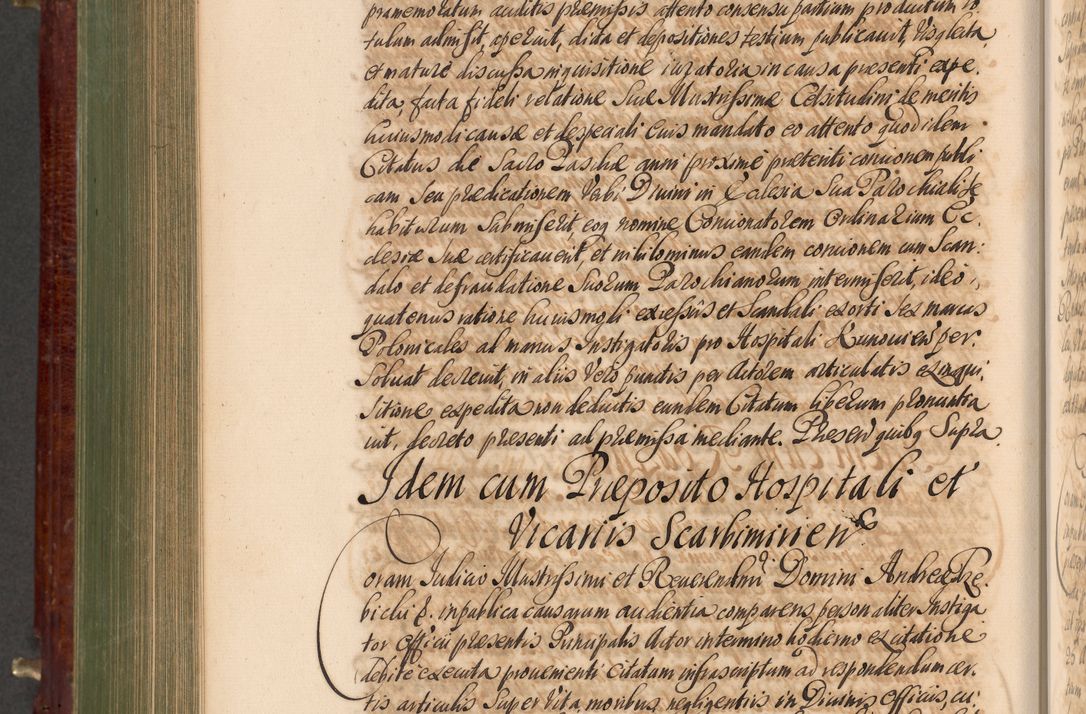 pramemoratum auditis præmissis attento consensu partium productum ro
tulum admisit, aperuit, dicta et depositiones testium publicavit, Visq; lecta
et mature discussa inquisitione iuratoria in causa præsenti expe-
dita, facta fideli relatione Suæ Illustrissimæ Celsitudini de meritis
huiusmodi causæ et de speciali eius mandato eo attento quod idem
Citatus die Sacro Paschæ anni proximè præteriti concionem publi
cam seu prædicationem Verbi Divini in Ecclesia Sua Parochiali se
habiturum submiserit, eoq nomine Concionatorem Ordinarium Ec-
clesiæ suæ certificaverit, et nihilominus eandem concionem cum Scan-
dalo et defraudatione Suorum Parochianorum intermiserit, ideo
quatenus ratione huiusmodi excessûs et Scandali exorti sex marcas
Polonicales ad manus Instigatoris pro Hospitali Kunovien per-
solvat decrevit, in aliis Vero punctis per Actorem articulatis ex inqui-
sitione expedita non deductis eundem Citatum liberum pronuntia
vit, decreto præsenti ad præmissa mediante. Presen quibq Supra.
Idem cum Præposito Hospitali et
Vicariis Scarbimirien
Coram Judicio Illustrissimi et Reverendmi Domini Andreæ Trze-
bicki E. in publica causarum audientia comparens personaliter Instiga
tor Officii præsentis Principalis Actor in termino hodierno ex citatione
debite executa provenienti Citatum infrascriptum ad respondendum cer-
tis articulis super Vita, moribus negligentiis in Divinis Officiis, cu-